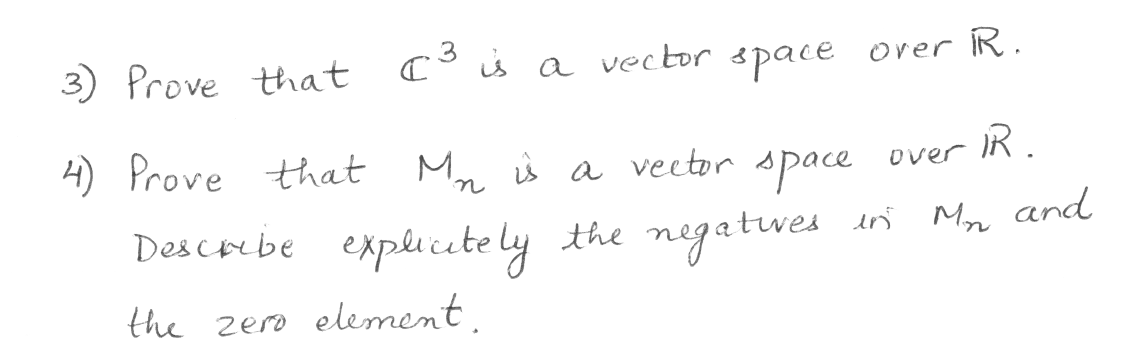 3) Prove that ℂ³ is a vector space over ℝ.
4) Prove that Mₙ is a vector space over ℝ.
Describe explicitely the negatives in Mₙ and
the zero element.